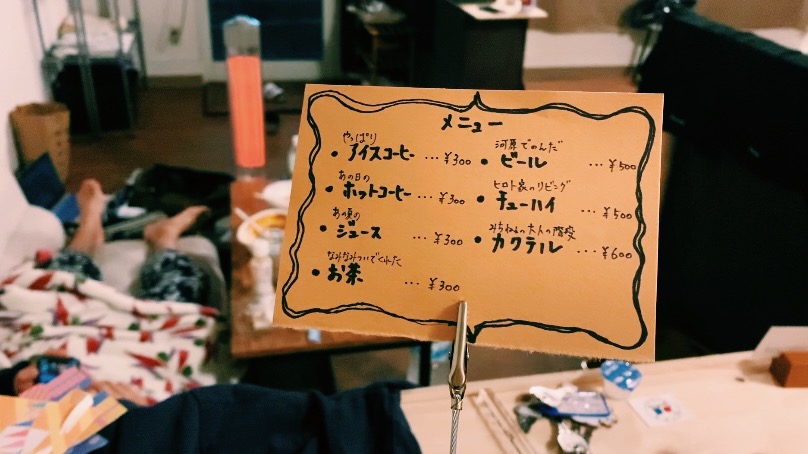 メニュー
やっぱり
• アイスコーヒー … ¥300
あの日の
• ホットコーヒー … ¥300
あの夏の
• ジュース … ¥300
なみなみついでくれた
• お茶 … ¥300
河原でのんだ
• ビール … ¥500
ヒロト家のリビング
• チューハイ … ¥500
みちねるの大人の階段
• カクテル … ¥600